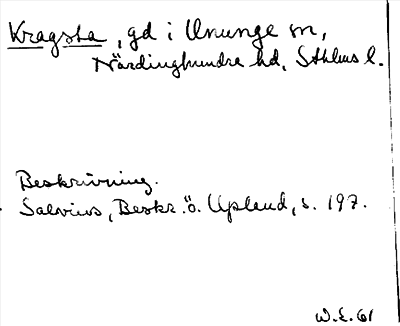 Kragsta, gd i Ununge sn,
Närdinghundra hd, Sthlms l.
Beskrivning.
Salvius, Beskr. ö. Upland, s. 197.
W.L. 61